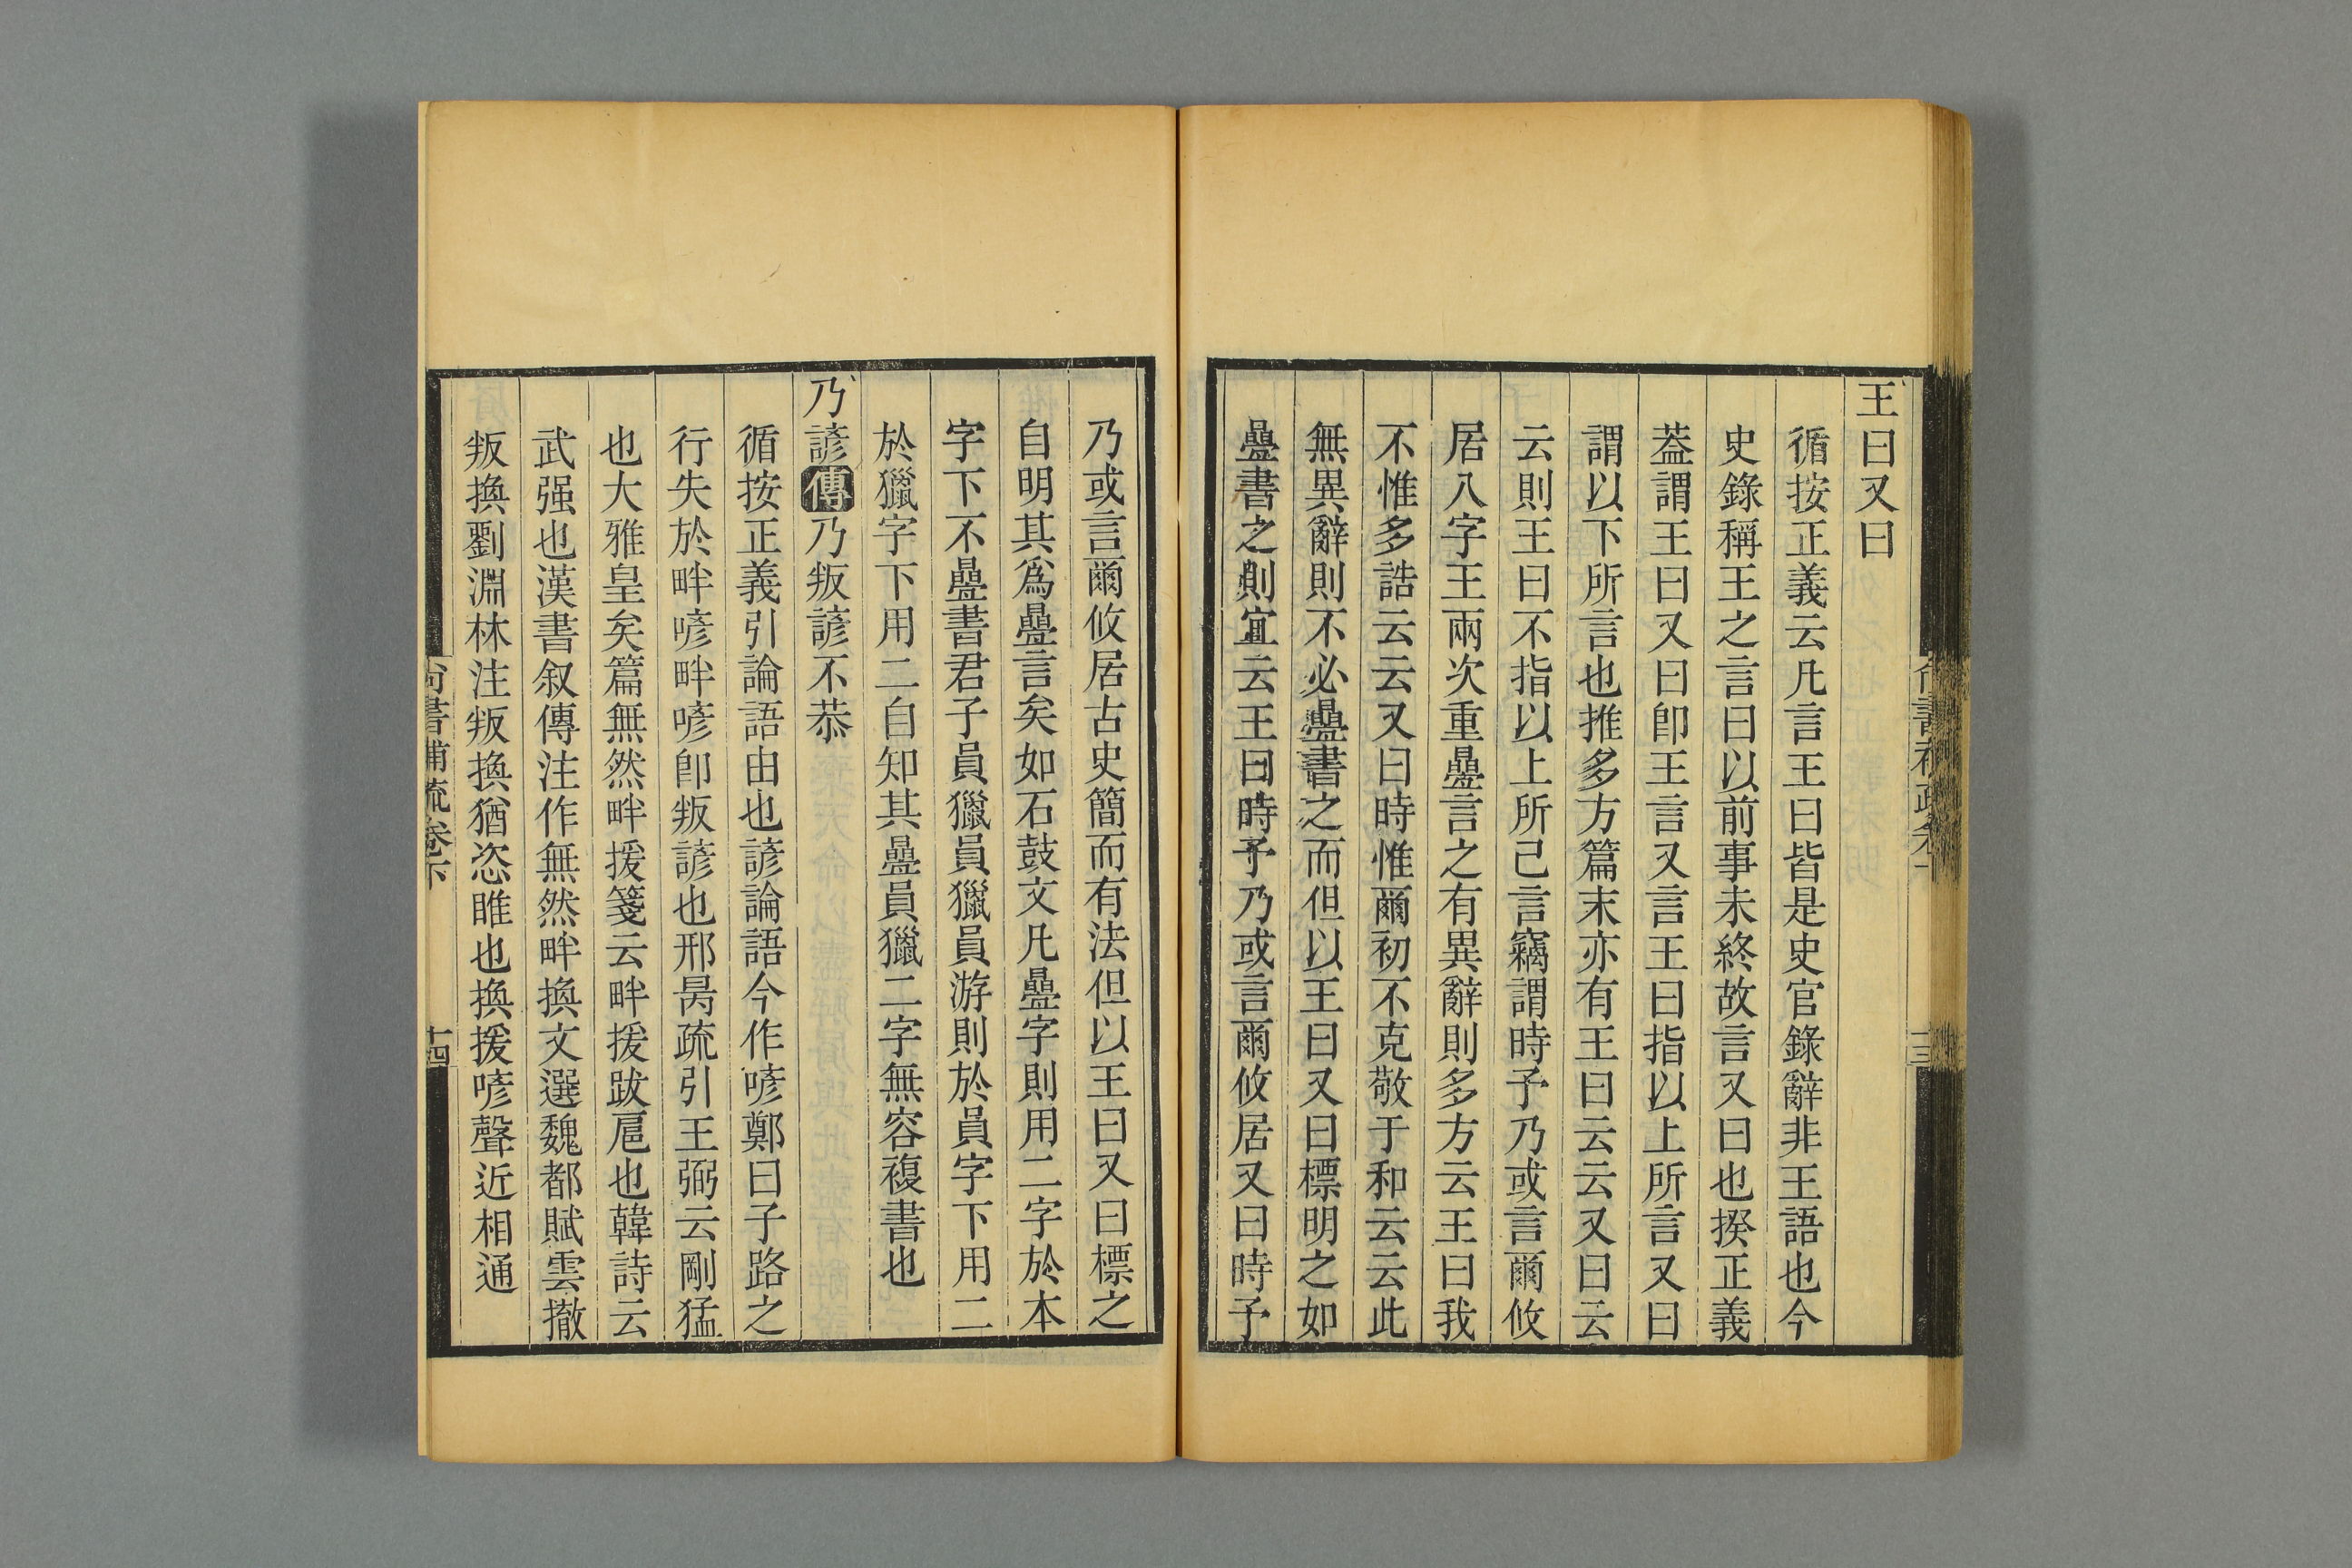 王曰又曰
循按正義云凡言王曰皆是史官錄辭非王語也今
史錄稱王之言曰以前事未終故言又曰也揆正義
葢謂王曰又曰卽王言又言王曰指以上所言又曰
謂以下所言也推多方篇末亦有王曰云云又曰云
云則王曰不指以上所己言竊謂時予乃或言爾攸
居八字王兩次重疊言之有異辭則多方云王曰我
不惟多誥云云又曰時惟爾初不克敬于和云云此
無異辭則不必疊書之而但以王曰又曰標明之如
疊書之則宜云王曰時予乃或言爾攸居又曰時予
乃或言爾攸居古史簡而有法但以王曰又曰標之
自明其爲疊言矣如石鼓文凡疊字則用二字於本
字下不疊書君子員獵員獵員游則於員字下用二
於獵字下用二自知其疊員獵二字無容複書也
乃諺傳乃叛諺不恭
循按正義引論語由也諺論語今作喭鄭曰子路之
行失於畔喭畔喭卽叛諺也邢昺疏引王弼云剛猛
也大雅皇矣篇無然畔援箋云畔援跋扈也韓詩云
武强也漢書叙傳注作無然畔換文選魏都賦雲撤
叛換劉淵林注叛換猶恣睢也換援喭聲近相通
尚書補疏卷下
十四